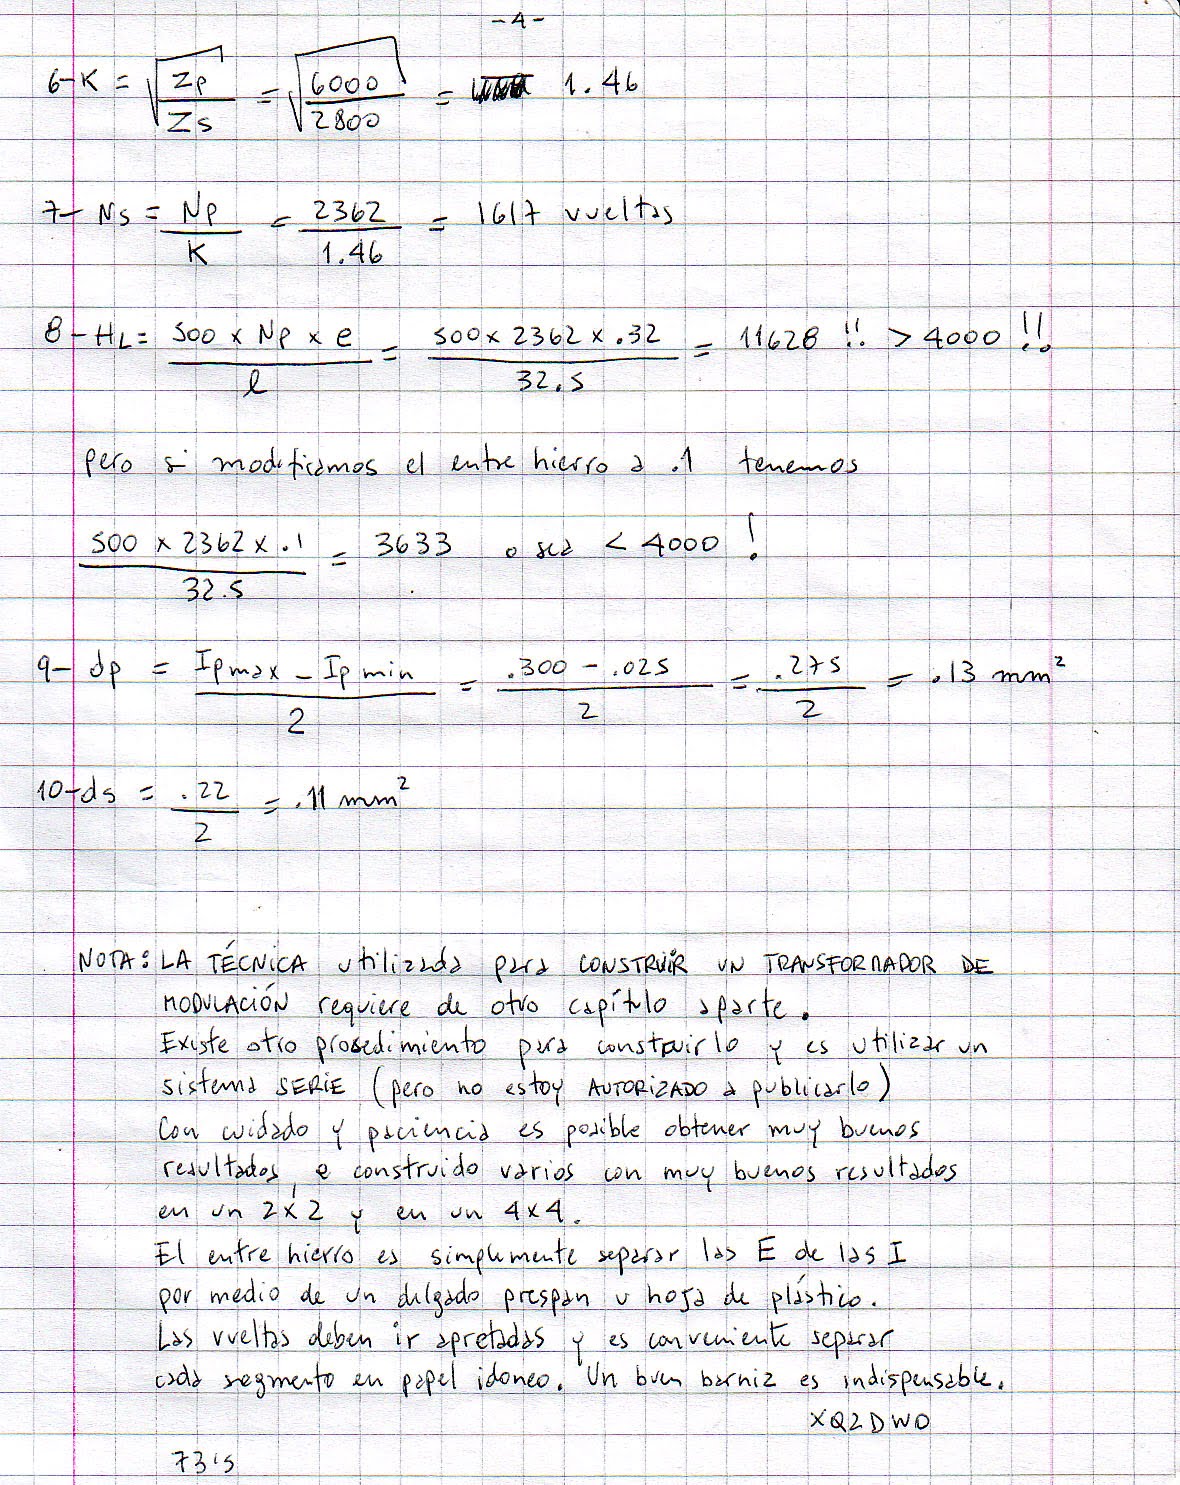 -4-
6-K = √(Zp/Zs) = √(6000/2800) = 1.46
7- Ns = Np/K = 2362/1.46 = 1617 vueltas
8-HL= (500 x Np x e)/l = (500 x 2362 x .32)/32.5 = 11628 !! > 4000 !!
pero si modificamos el entre hierro a .1 tenemos
(500 x 2362 x .1)/32.5 = 3633 o sea < 4000 !
9- dp = (Ipmax - Ip min)/2 = (.300 - .025)/2 = .275/2 = .13 mm²
10-ds = .22/2 = .11 mm²
NOTA: LA TÉCNICA utilizada para CONSTRUIR UN TRANSFORMADOR DE
MODULACIÓN requiere de otro capítulo aparte.
Existe otro prosedimiento para construirlo y es utilizar un
sistema SERIE (pero no estoy AUTORIZADO a publicarlo)
Con cuidado y paciencia es posible obtener muy buenos
resultados, e construido varios con muy buenos resultados
en un 2x2 y en un 4x4.
El entre hierro es simplemente separar las E de las I
por medio de un delgado prespan u hoja de plástico.
Las vueltas deben ir apretadas y es conveniente separar
cada segmento en papel idoneo. Un buen barniz es indispensable.
XQ2DWO
73's